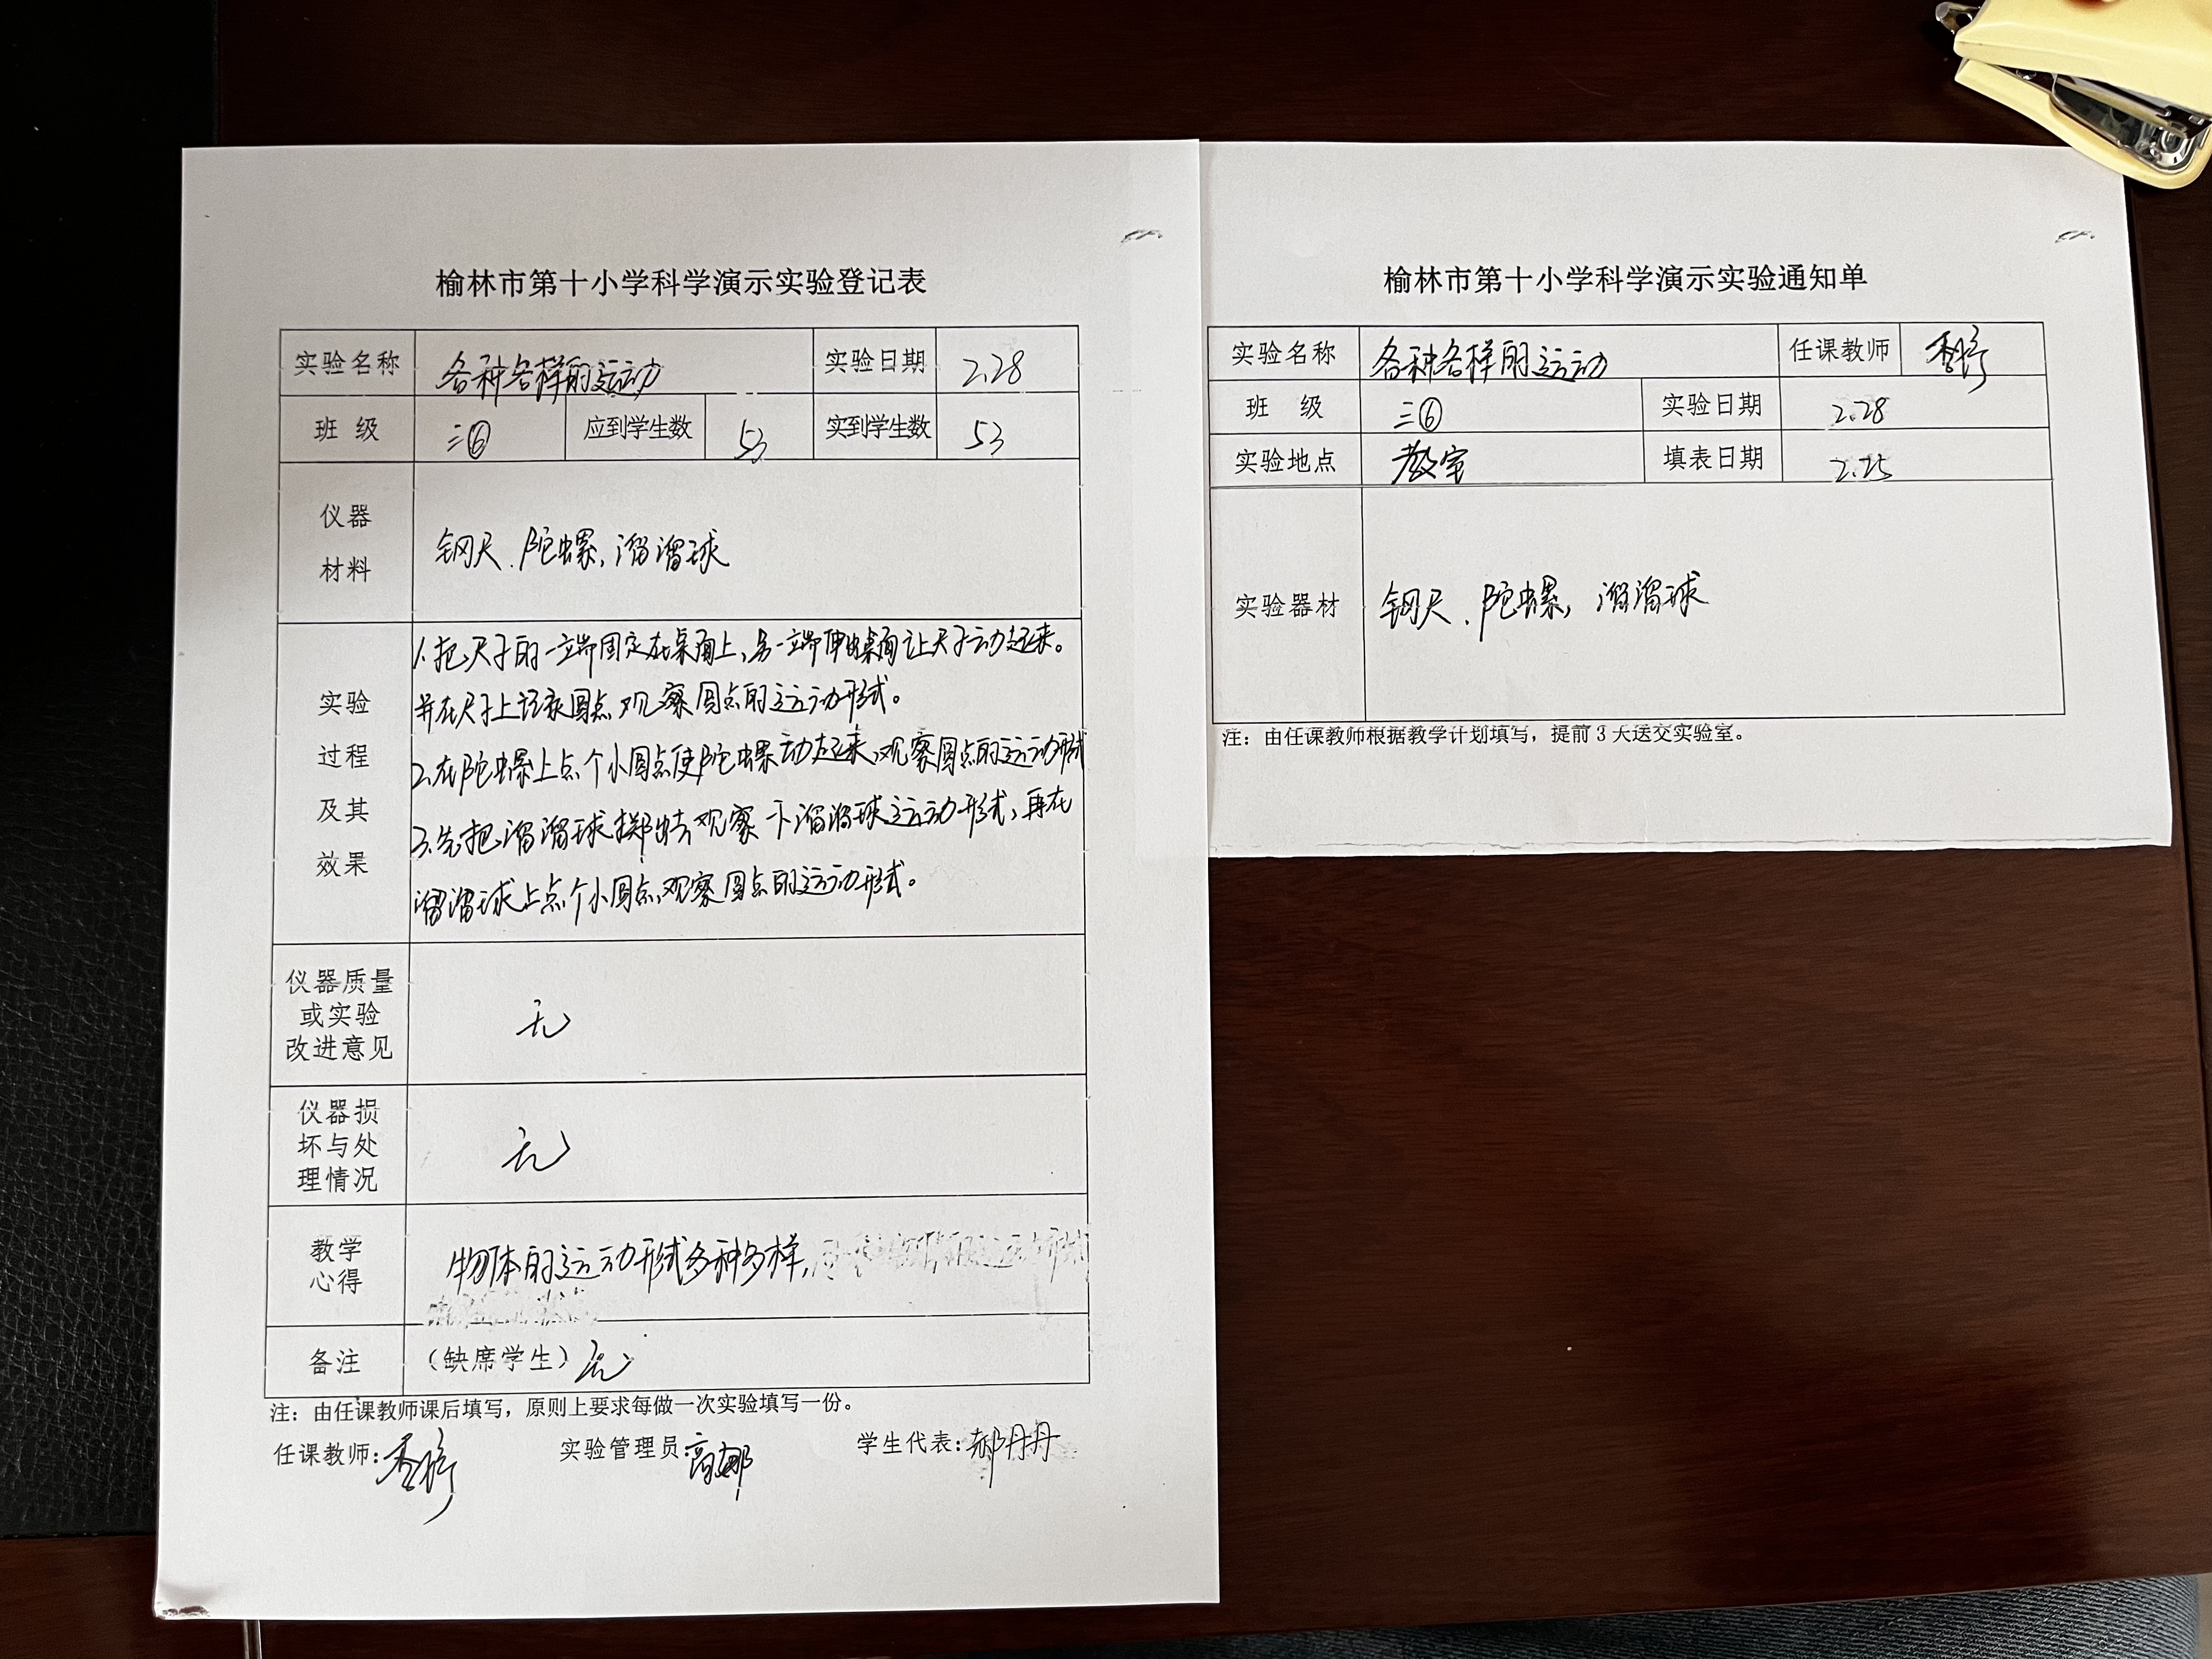 榆林市第十小学科学演示实验登记表
实验名称 各种各样的运动 实验日期 2.28
班 级 三⑥ 应到学生数 53 实到学生数 53
仪器
材料
钢尺、陀螺,溜溜球
实验
过程
及其
效果
1.把尺子的一端固定在桌面上,另一端伸出桌面让尺子动起来。
并在尺子上记录圆点,观察圆点的运动形式。
2.在陀螺上点个小圆点使陀螺动起来,观察圆点的运动形式
3.先把溜溜球掷出去,观察一下溜溜球运动形式,再在
溜溜球上点个小圆点,观察圆点的运动形式。
仪器质量
或实验
改进意见
无
仪器损
坏与处
理情况
无
教学
心得
物体的运动形式多种多样,
备注 (缺席学生) 无
注:由任课教师课后填写,原则上要求每做一次实验填写一份。
任课教师: 实验管理员:高娜 学生代表:郝丹丹
榆林市第十小学科学演示实验通知单
实验名称 各种各样的运动 任课教师
班 级 三⑥ 实验日期 2.28
实验地点 教室 填表日期 2.25
实验器材 钢尺、陀螺,溜溜球
注:由任课教师根据教学计划填写,提前3天送交实验室。